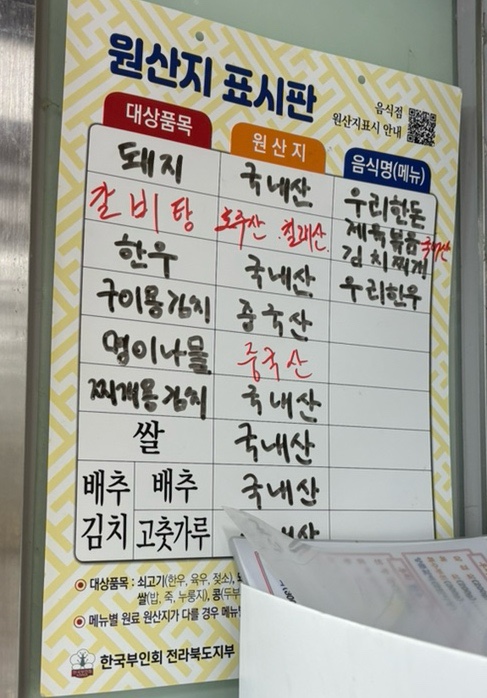 원산지 표시판
음식점
원산지표시 안내
대상품목 원산지 음식명(메뉴)
돼지 국내산 우리한돈
갈비탕 호주산 . 칠레산. 제육볶음 국내산
김치찌개
한우 국내산 우리한우
구이용김치 중국산
명이나물 중국산
찌개용김치 국내산
쌀 국내산
배추 배추 국내산
김치 고춧가루
대상품목 : 쇠고기(한우, 육우, 젖소),
쌀(밥, 죽, 누룽지), 콩(두부
메뉴별 원료 원산지가 다를 경우
한국부인회 전라북도지부